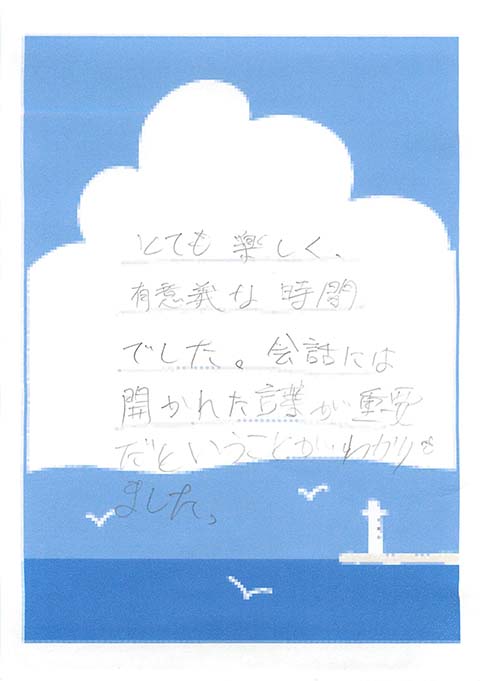 とても楽しく、
有意義な時間
でした。会話には
開かれた言葉が重要
だということがわかり
ました。